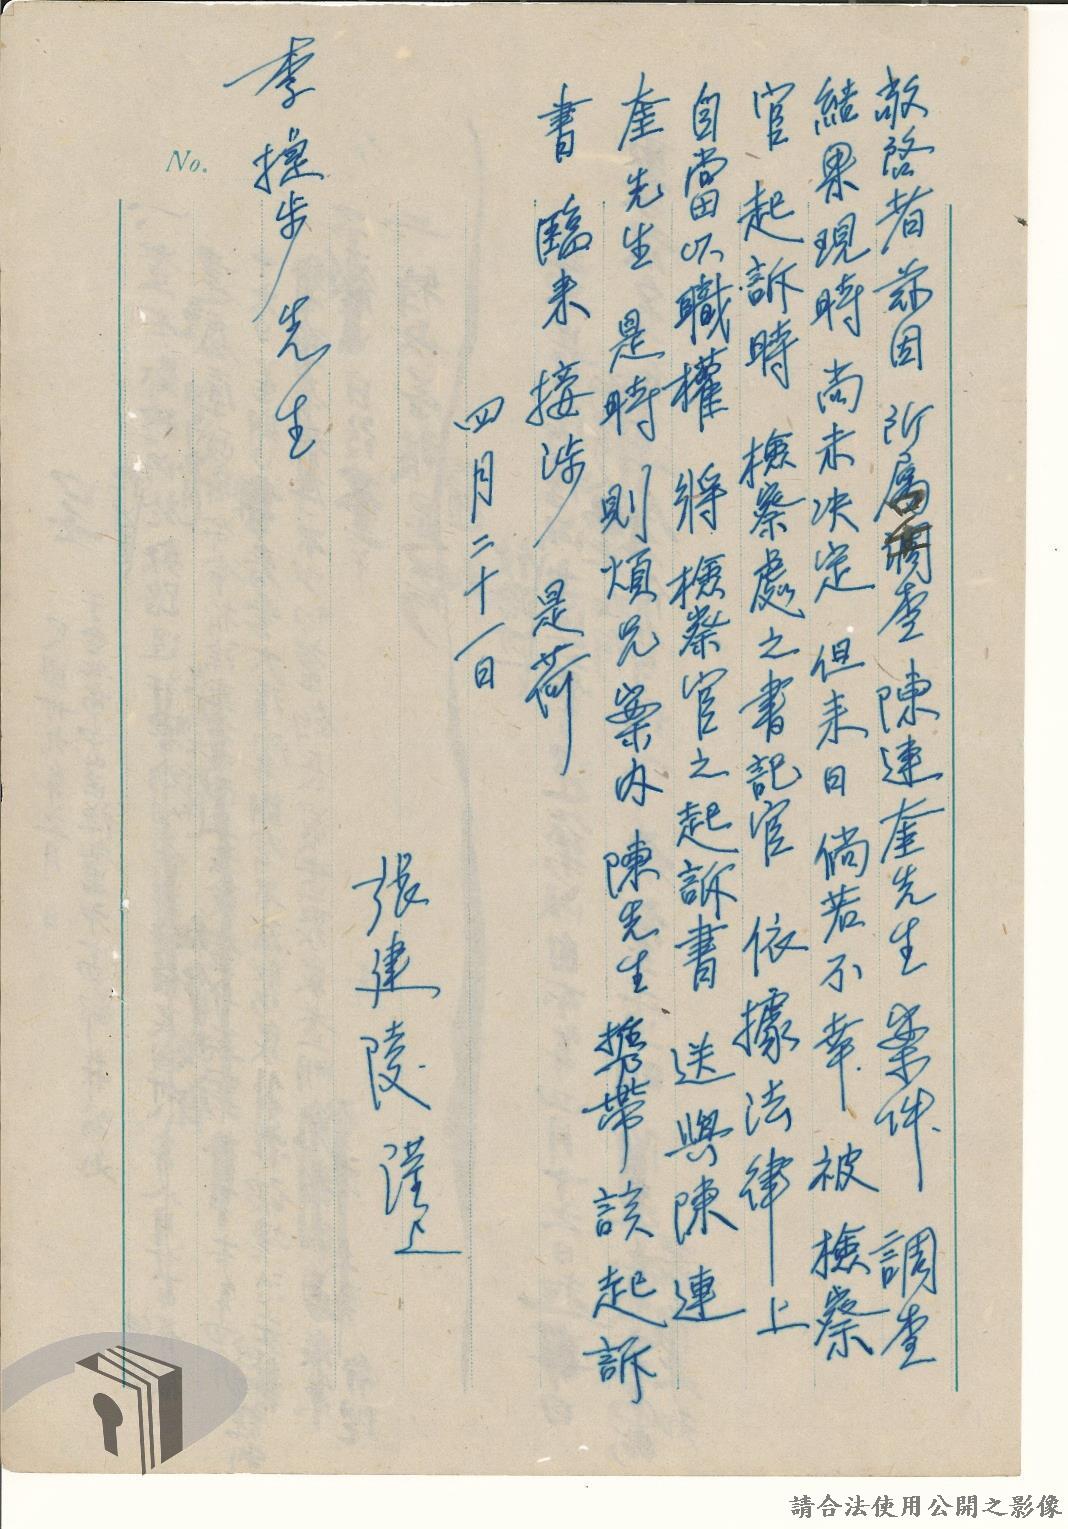 敬啓者茲因 所屬調查 陳連奎先生 案件 調查
結果現時 尚未決定 但未日 倘若不幸 被 檢察
官 起訴時 檢察處之書記官 依據法律上
自當以職權 將 檢察官之起訴書 送與陳連
奎先生 是時 則煩兄案內 陳先生 携帶 該起訴
書 臨来 接涉 是荷
四月二十一日
張建陵 謹上
李 步 先生
No.
請合法使用公開之影像